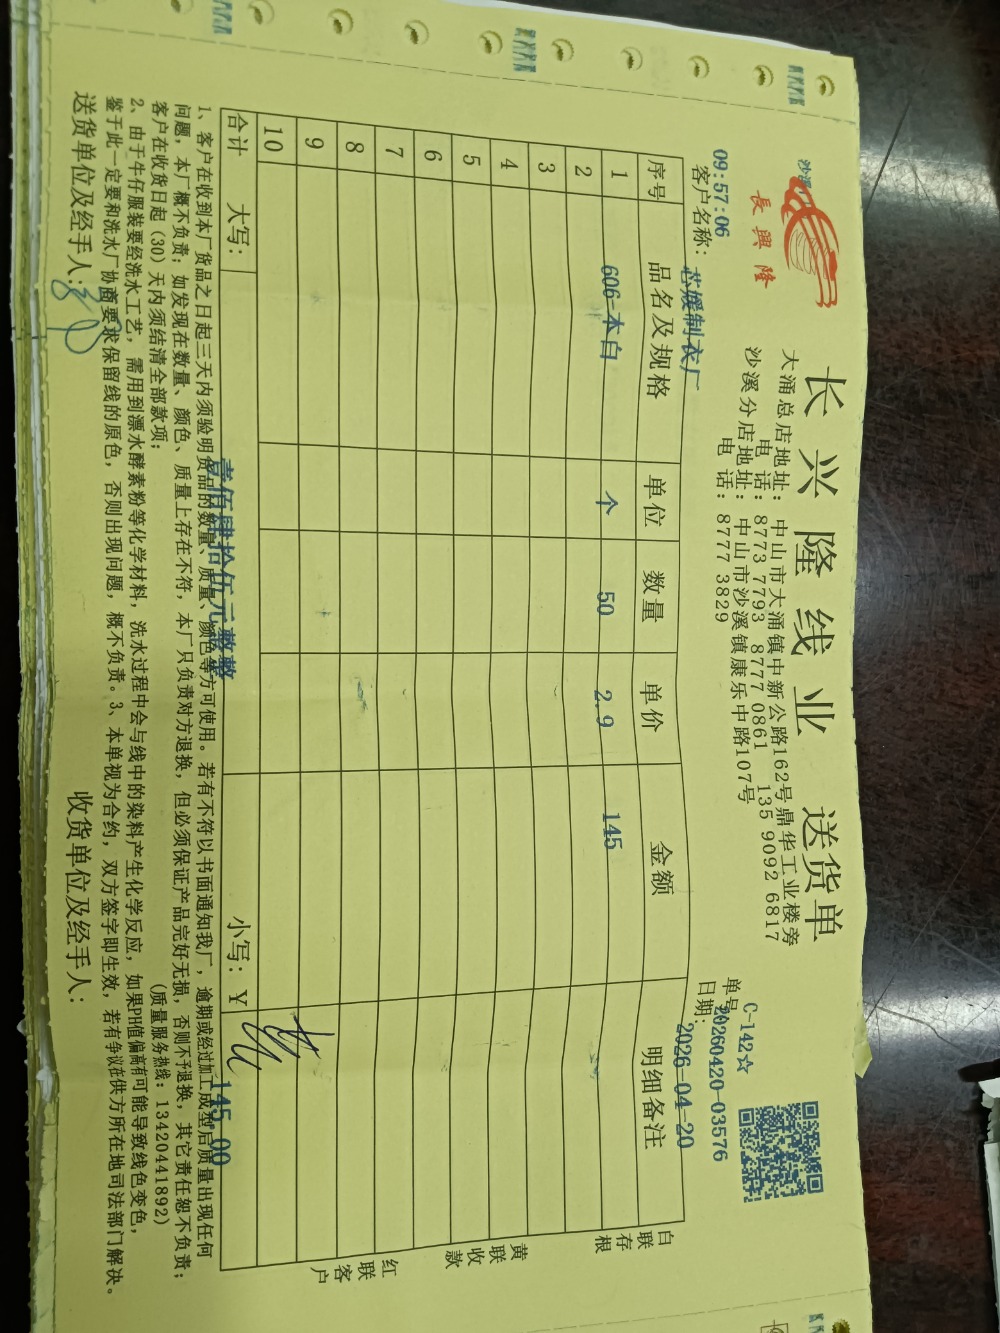 長興隆
长兴隆线业 送货单
大涌总店地址：中山市大涌镇中新公路162号鼎华工业楼旁
电 话：8773 7793 8777 0861 135 9092 6817
沙溪分店地址：中山市沙溪镇康乐中路107号
电 话：8777 3829
C-142☆
单号：20260420-03576
日期：2026-04-20
09:57:06
客户名称：芯媛制衣厂
序号 品名及规格 单位 数量 单价 金额 明细备注
1 606-本白 个 50 2.9 145
2
3
4
5
6
7
8
9
10
合计 大写：壹佰肆拾伍元整 小写：￥ 145.00
白联存根
黄联收款
红联客户
1、客户在收到本厂货品之日起三天内须验明货品的数量、质量、颜色等方可使用。若有不符以书面通知我厂，逾期或经过加工成型后质量出现任何
问题，本厂概不负责；如发现在数量、颜色、质量上存在不符，本厂只负责对方退换，但必须保证产品完好无损，否则不予退换，其它责任恕不负责；
客户在收货日起（30）天内须结清全部款项； （质量服务热线：13420441892）
2、由于牛仔服装要经洗水工艺，需用到漂水酵素粉等化学材料，洗水过程中会与线中的染料产生化学反应，如果PH值偏高有可能导致线色变色，
鉴于此一定要和洗水厂协商要求保留线的原色，否则出现问题，概不负责。3、本单视为合约，双方签字即生效，若有争议在供方所在地司法部门解决。
送货单位及经手人： 收货单位及经手人：